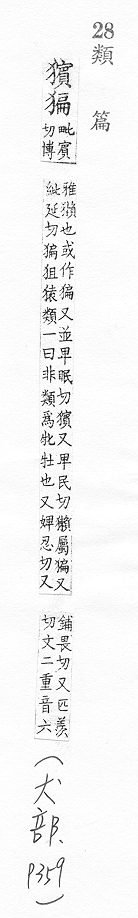 28類篇
獱猵 毗賓切博
雅獱也或作猵又並卑眠切獱又卑民切獺屬猵又
紕延切猵狙猿類一曰非類爲牝牡也又婢忍切又
鋪畏切又匹羨
切文二重音六
(犬部、P359)